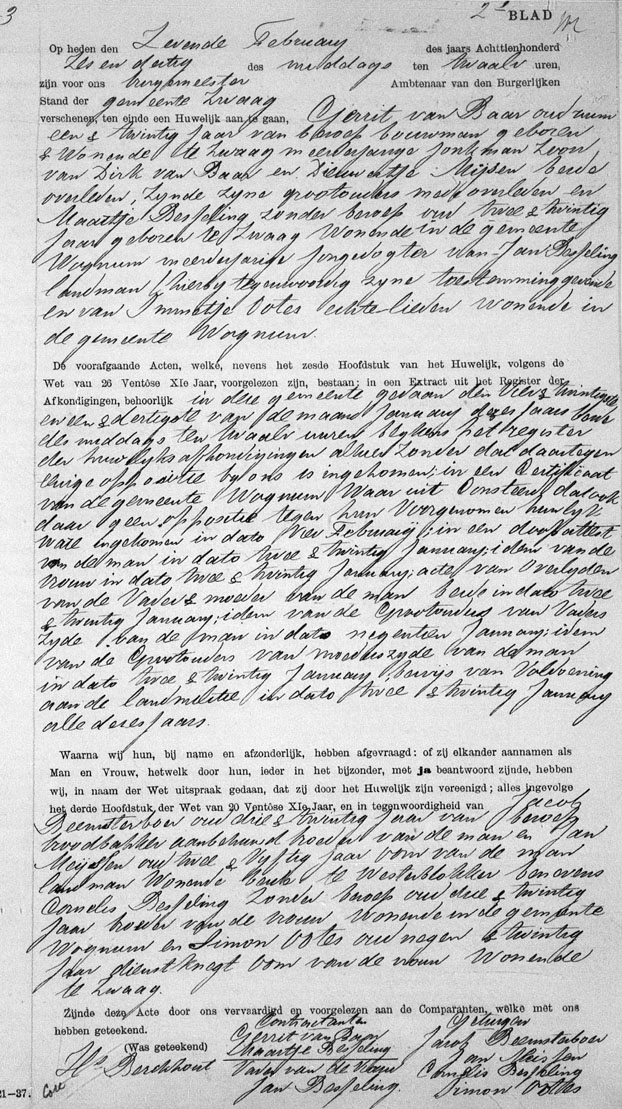 3
2e BLAD
Op heden den Zevende February des jaars Achttienhonderd
Zes en dertig des middags ten twaalv uren,
zijn voor ons burgemeester Ambtenaar van den Burgerlijken
Stand der gemeente Zwaag
verschenen, ten einde een Huwelijk aan te gaan, Gerrit van Baar oud ruim
een & twintig Jaar van beroep bouwman geboren
& Wonende te Zwaag meerderjarige Jonkman Zoon
van Dirk van Baar en Dieuwertje Mijsen beide
overleden, Zynde zyne grootouders mede overleden en
Maartje Besseling zonder beroep oud twee & twintig
Jaar geboren te Zwaag Wonende in de gemeente
Wognum meerderjarige Jongedogter van Jan Besseling
landman hierby tegenwoordig zyne toestemming gevende
en van Immetje Ootes echte lieden Wonende in
de gemeente Wognum.
De voorafgaande Acten, welke, nevens het zesde Hoofdstuk van het Huwelijk, volgens de
Wet van 26 Ventôse XIe Jaar, voorgelezen zijn, bestaan; in een Extract uit het Register der
Afkondigingen, behoorlijk in dese gemeente gedaan den Vier & twintigste
en een & dertigste van de maand January deses Jaars beide
des middags ten twaalv uuren blykens het register
der huwelyks afkondigingen alhier zonder dat daartegen
eenige oppositie by ons is ingekomen; in een Certificaat
van de gemeente Wognum Waar uit Consteerd dat ook
daar geen oppositie tegen hun Voorgenomen huwlyk
Ware ingekomen in dato Vier February; in een doop attest
van de man in dato twee & twintig January; idem van de
vrouw in dato twee & twintig January; acte van Overlyden
van de Vader & moeder van de man beide in dato twee
& twintig January; idem van de Grootouders van Vaders
Zyde van de man in dato negentien January; idem
van de Grootouders van moeders zyde van de man
in dato twee & twintig January bewijs van Voldoening
aan de landmilitie in dato twee & twintig January
alle deses Jaars.
Waarna wij hun, bij name en afzonderlijk, hebben afgevraagd: of zij elkander aannamen als
Man en Vrouw, hetwelk door hun, ieder in het bijzonder, met ja beantwoord zijnde, hebben
wij, in naam der Wet uitspraak gedaan, dat zij door het Huwelijk zijn vereenigd; alles ingevolge
het derde Hoofdstuk, der Wet van 20 Ventôse XIe Jaar, en in tegenwoordigheid van Jacob
Beemsterboer oud drie & twintig Jaar van beroep
broodbakker aanbehuwd broeder van de man en Jan
Meijssen oud twee & Vyftig Jaar oom van de man
landman Wonende beide te Westerblokker benevens
Cornelis Besseling Zonder beroep oud drie & twintig
Jaar broeder van de vrouw Wonende in de gemeente
Wognum en Simon Ootes oud negen & twintig
Jaar dienstknegt Oom van de vrouw Wonende
te Zwaag.
Zijnde deze Acte door ons vervaardigd en voorgelezen aan de Comparanten, welke met ons
hebben geteekend.
Contractanten Getuigen
(Was geteekend) Gerrit van Baar Jacob Beemsterboer
Maartje Besseling Jan Meissen
Hs Berckhout Vader van de Vrouw Cornelis Besseling
Jan Besseling. Simon Ootes
21-37.